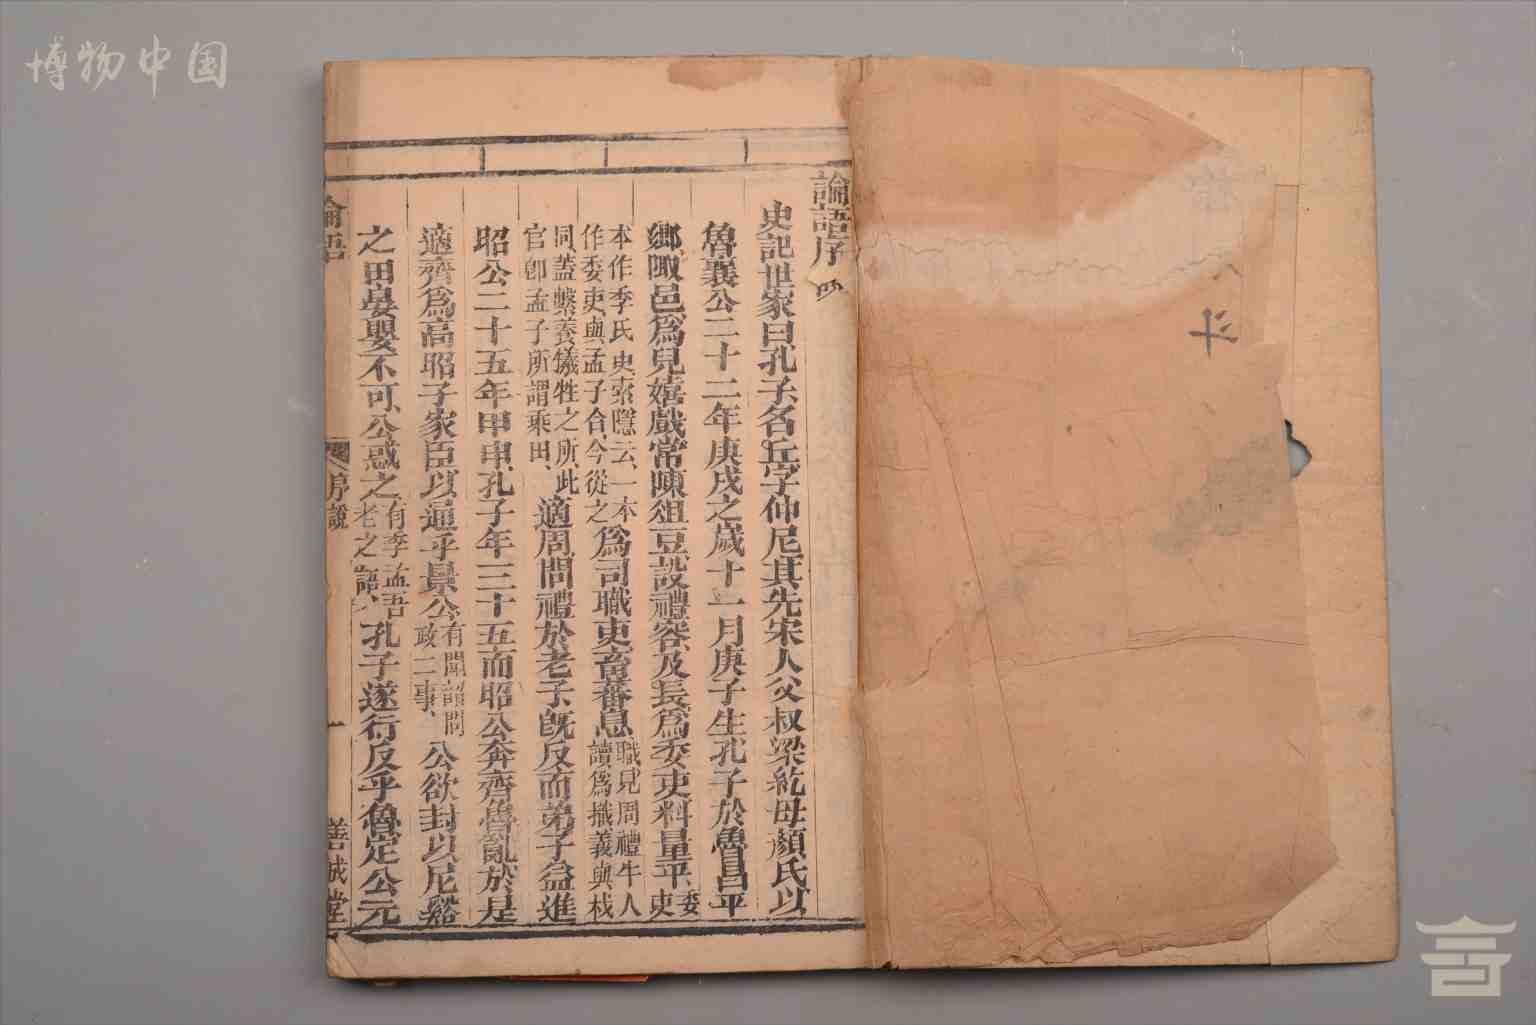 博物中国
論語序
史記世家曰孔子名丘字仲尼其先宋人父叔梁紇母顏氏以
魯襄公二十二年庚戌之歲十一月庚子生孔子於魯昌平
鄉陬邑爲兒嬉戲常陳俎豆設禮容及長爲委吏料量平委吏
本作季氏史索隱云一本作委吏與孟子合今從之爲司職吏畜蕃息職見周禮牛人讀爲樴義與杙
同蓋繫養犧牲之所此官卽孟子所謂乘田適周問禮於老子旣反而弟子益進
昭公二十五年甲申孔子年三十五而昭公奔齊魯亂於是
適齊爲高昭子家臣以通乎景公有聞韶問政二事公欲封以尼谿
之田晏嬰不可公惑之有季孟吾老之語孔子遂行反乎魯定公元
論語
序說
一
善成堂
斗